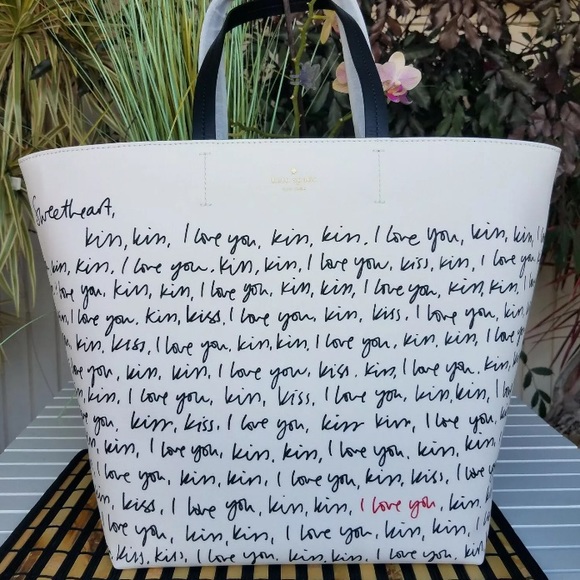 kate spade
NEW YORK
Sweetheart,
kiss, kiss, I love you, kiss, kiss. I love you, kiss, kiss, I
kiss, kiss, I love you. kiss, kiss, I love you, kiss, kiss, I love
I love you, kiss, kiss, I love you, kiss, kiss, I love you, kiss, kiss. I
I love you, kiss, kiss, I love you, kiss, kiss, I love you. kiss, kiss,
kiss, kiss, I love you, kiss, kiss, I love you. kiss, kiss, I love
love you, kiss, kiss, I love you, kiss. kiss, I love you. kiss,
kiss, kiss, I love you, kiss, kiss, I love you, kiss, kiss, I
you. kiss, kiss. I love you, kiss kiss, I love you,
kiss, I love you, kiss, kiss, I love you. kiss, kiss,
I love you, kiss, kiss, I love you, kiss, kiss, I love
kiss, kiss, I love you, kiss, kiss, I love you, kiss,
love you, kiss, kiss, I love you, kiss, kiss, I
kiss, kiss, I love you, kiss, kiss, I love you, kiss,